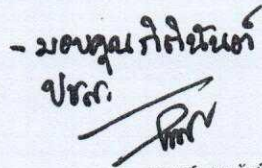 - มอบคุณกิตินันต์
ปชส.